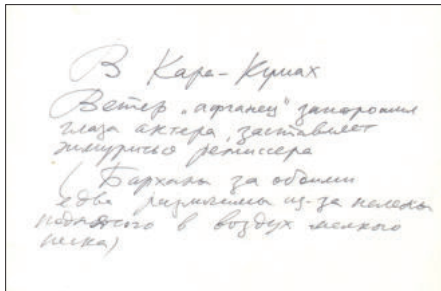 В Кара-Кумах
Ветер „афганец" запорошил
глаза актера, заставляет
жмуриться режиссера
(Барханы за обоими
едва различимы из-за пелены
поднятого в воздух мелкого
песка)